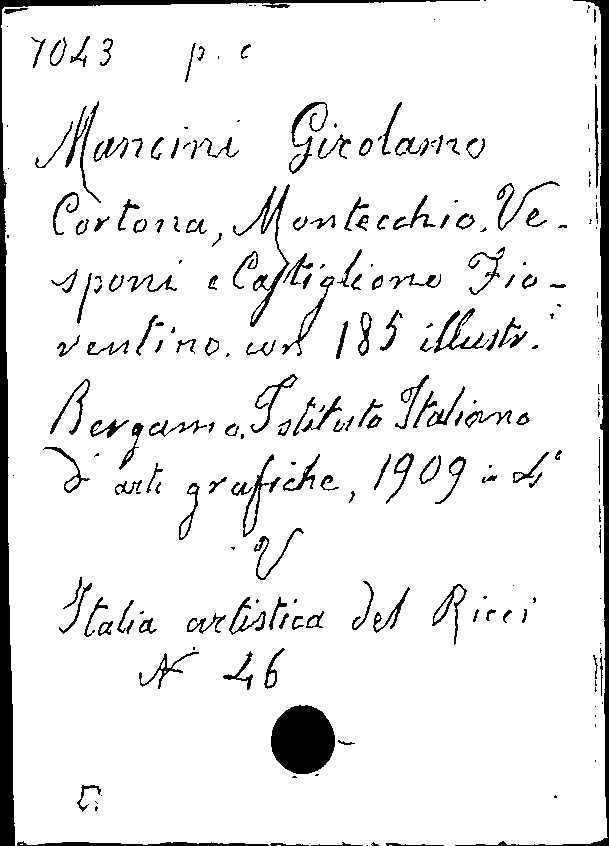 7043 p. c
Mancini Girolamo
Cortona, Montecchio, Ve-
sponi e Castiglione Fio-
rentino. con 185 illustr.
Bergamo. Istituto Italiano
d' arti grafiche, 1909 in 4°
V
Italia artistica del Ricci
N 46